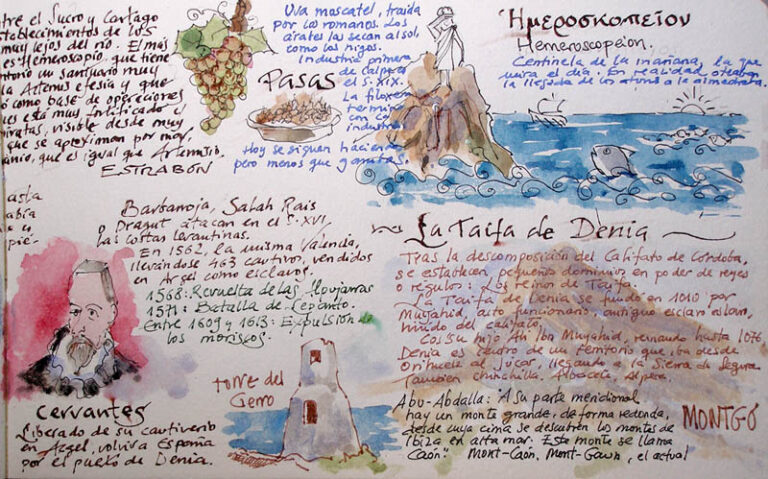 ntre el Sucro y Cartago
establecimientos de los
muy lejos del río. El más
es Hemeroscopio, que tiene
ntorio un santuario muy
la Artemis efesia y que
ó como base de operaciones
ues está muy fortificado el
piratas, visible desde muy
que se aproximan por mar,
anio, que es igual que Artemisio.
ESTRABÓN
Uva moscatel, traída
por los romanos. Los
árabes la secan al sol,
como los higos.
Industria primera
de calpe
el S. XIX.
La filoxera
termina
con la
industria
Hoy se siguen haciendo
pero menos que gamitas.
Pasas
Ἡμεροσκοπεῖον
Hemeroscopeion.
Centinela de la mañana, la que
mira el día. En realidad oteaban
la llegada de los atunes a la almadraba.
asta
abía
a u
pié-
Barbarroja, Salah Rais
o Dragut atacan en el S. XVI
las costas levantinas.
En 1562, la misma Valencia,
llevándose 463 cautivos, vendidos
en Argel como esclavos.
1568: Revuelta de las Alpujarras
1571: Batalla de Lepanto.
Entre 1609 y 1613: Expulsión de
los moriscos.
Cervantes
Liberado de su cautiverio
en Argel, volvió a España
por el puerto de Denia.
torre del
Gerro
La Taifa de Dènia
Tras la descomposición del Califato de Córdoba,
se establecen pequeños dominios en poder de reyes
o régulos: Los reinos de Taifa.
La Taifa de Denia se fundó en 1010 por
Muyahid, alto funcionario, antiguo esclavo eslavo,
huido del califato.
Con su hijo Alí Ibn Muyahid, reinando hasta 1076,
Denia es centro de un territorio que iba desde
Orihuela al Júcar, llegando a la Sierra de Segura
Tamcien Chinchilla, Albacete, Alpera.
Abu-Abdalla: A su parte meridional
hay un monte grande, de forma redonda,
desde cuya cima se descubren los montes de
Ibiza en alta mar. Este monte se llama
Caón". Mont-Caón, Mont-Gawn, el actual
MONTGÓ